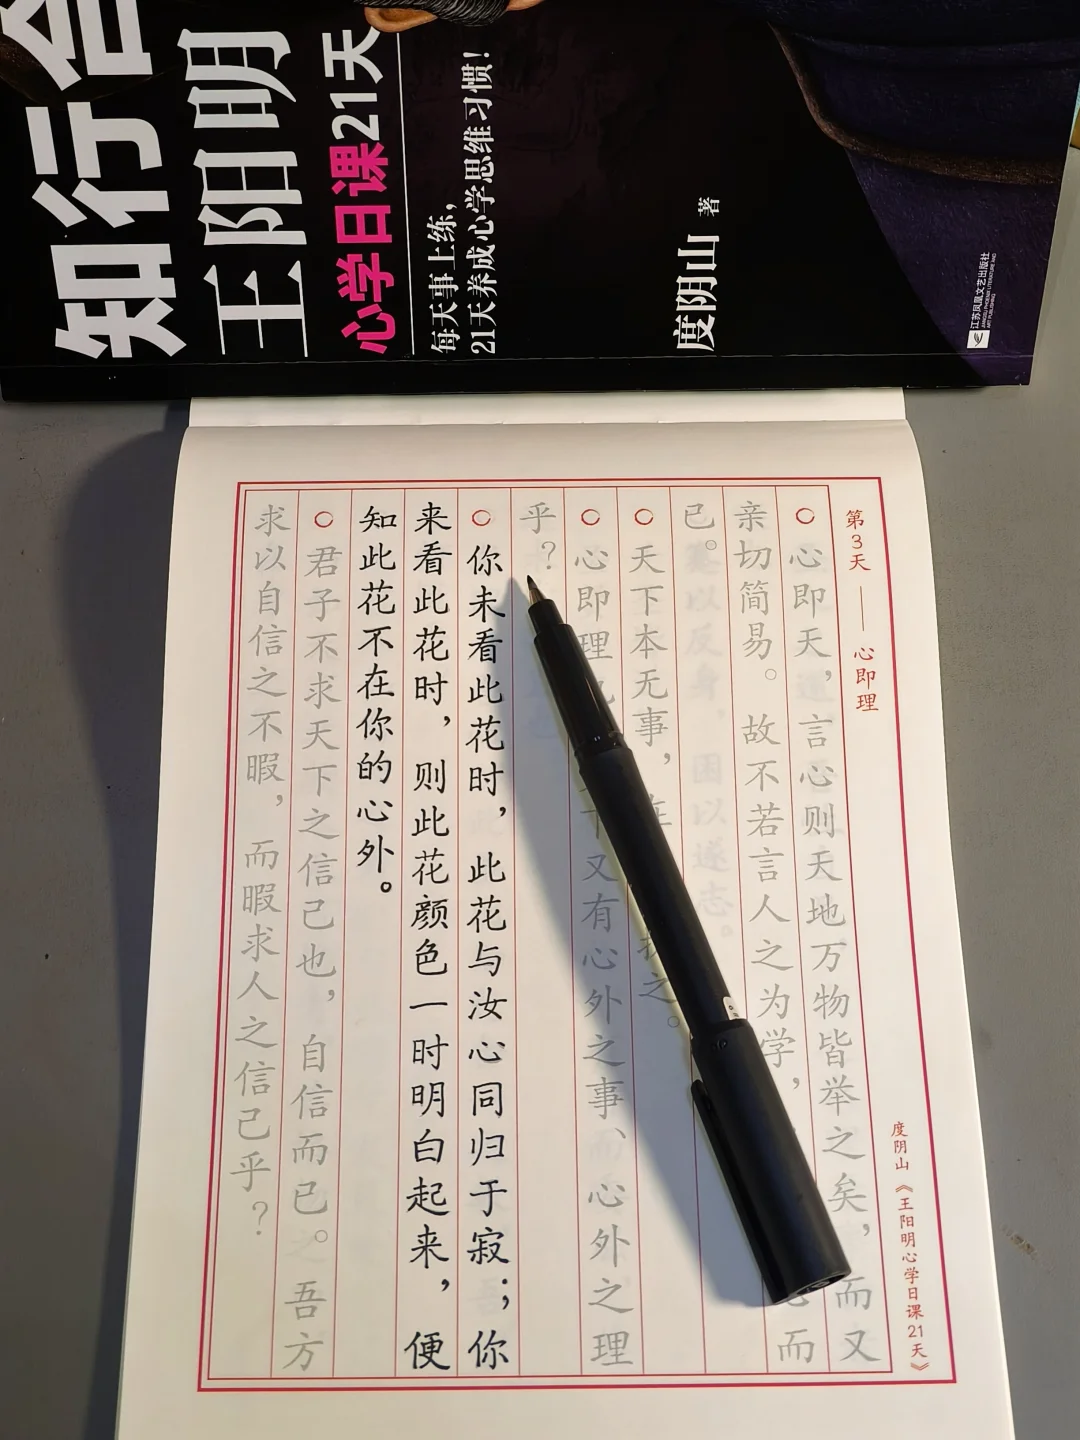 知行合
王阳明
心学日课21天
每天事上练，
21天养成心学思维习惯！
度阴山 著
江苏凤凰文艺出版社
JIANGSU PHOENIX LITERATURE AND
ART PUBLISHING
第3天——心即理
度阴山《王阳明心学日课21天》
○心即天，言心则天地万物皆举之矣，而又
亲切简易。故不若言人之为学，而
已。
○天下本无事，之。
○心即理又有心外之事、心外之理
乎？
○你未看此花时，此花与汝心同归于寂；你
来看此花时，则此花颜色一时明白起来，便
知此花不在你的心外。
○君子不求天下之信己也，自信而已。吾方
求以自信之不暇，而暇求人之信己乎？